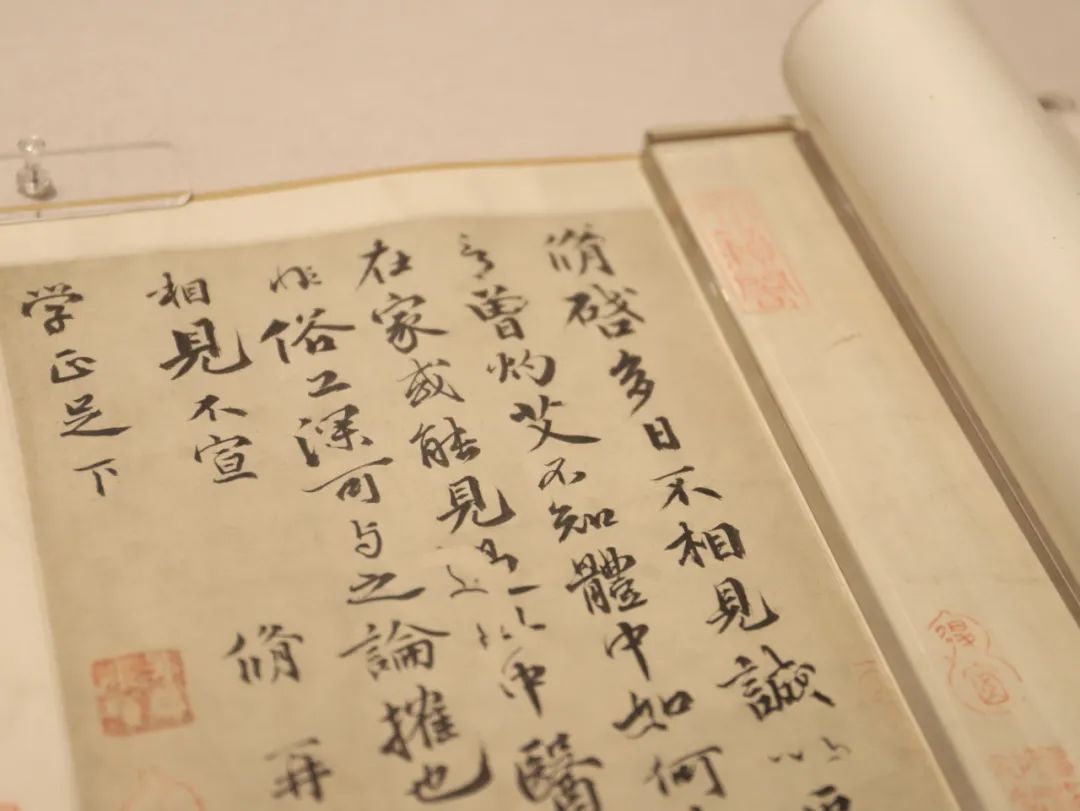 脩啓多日不相見誠以
言曾灼艾不知體中如何
在家或能見過此中醫
非俗工深可与之論搉也
相見不宣
脩再
学正足下